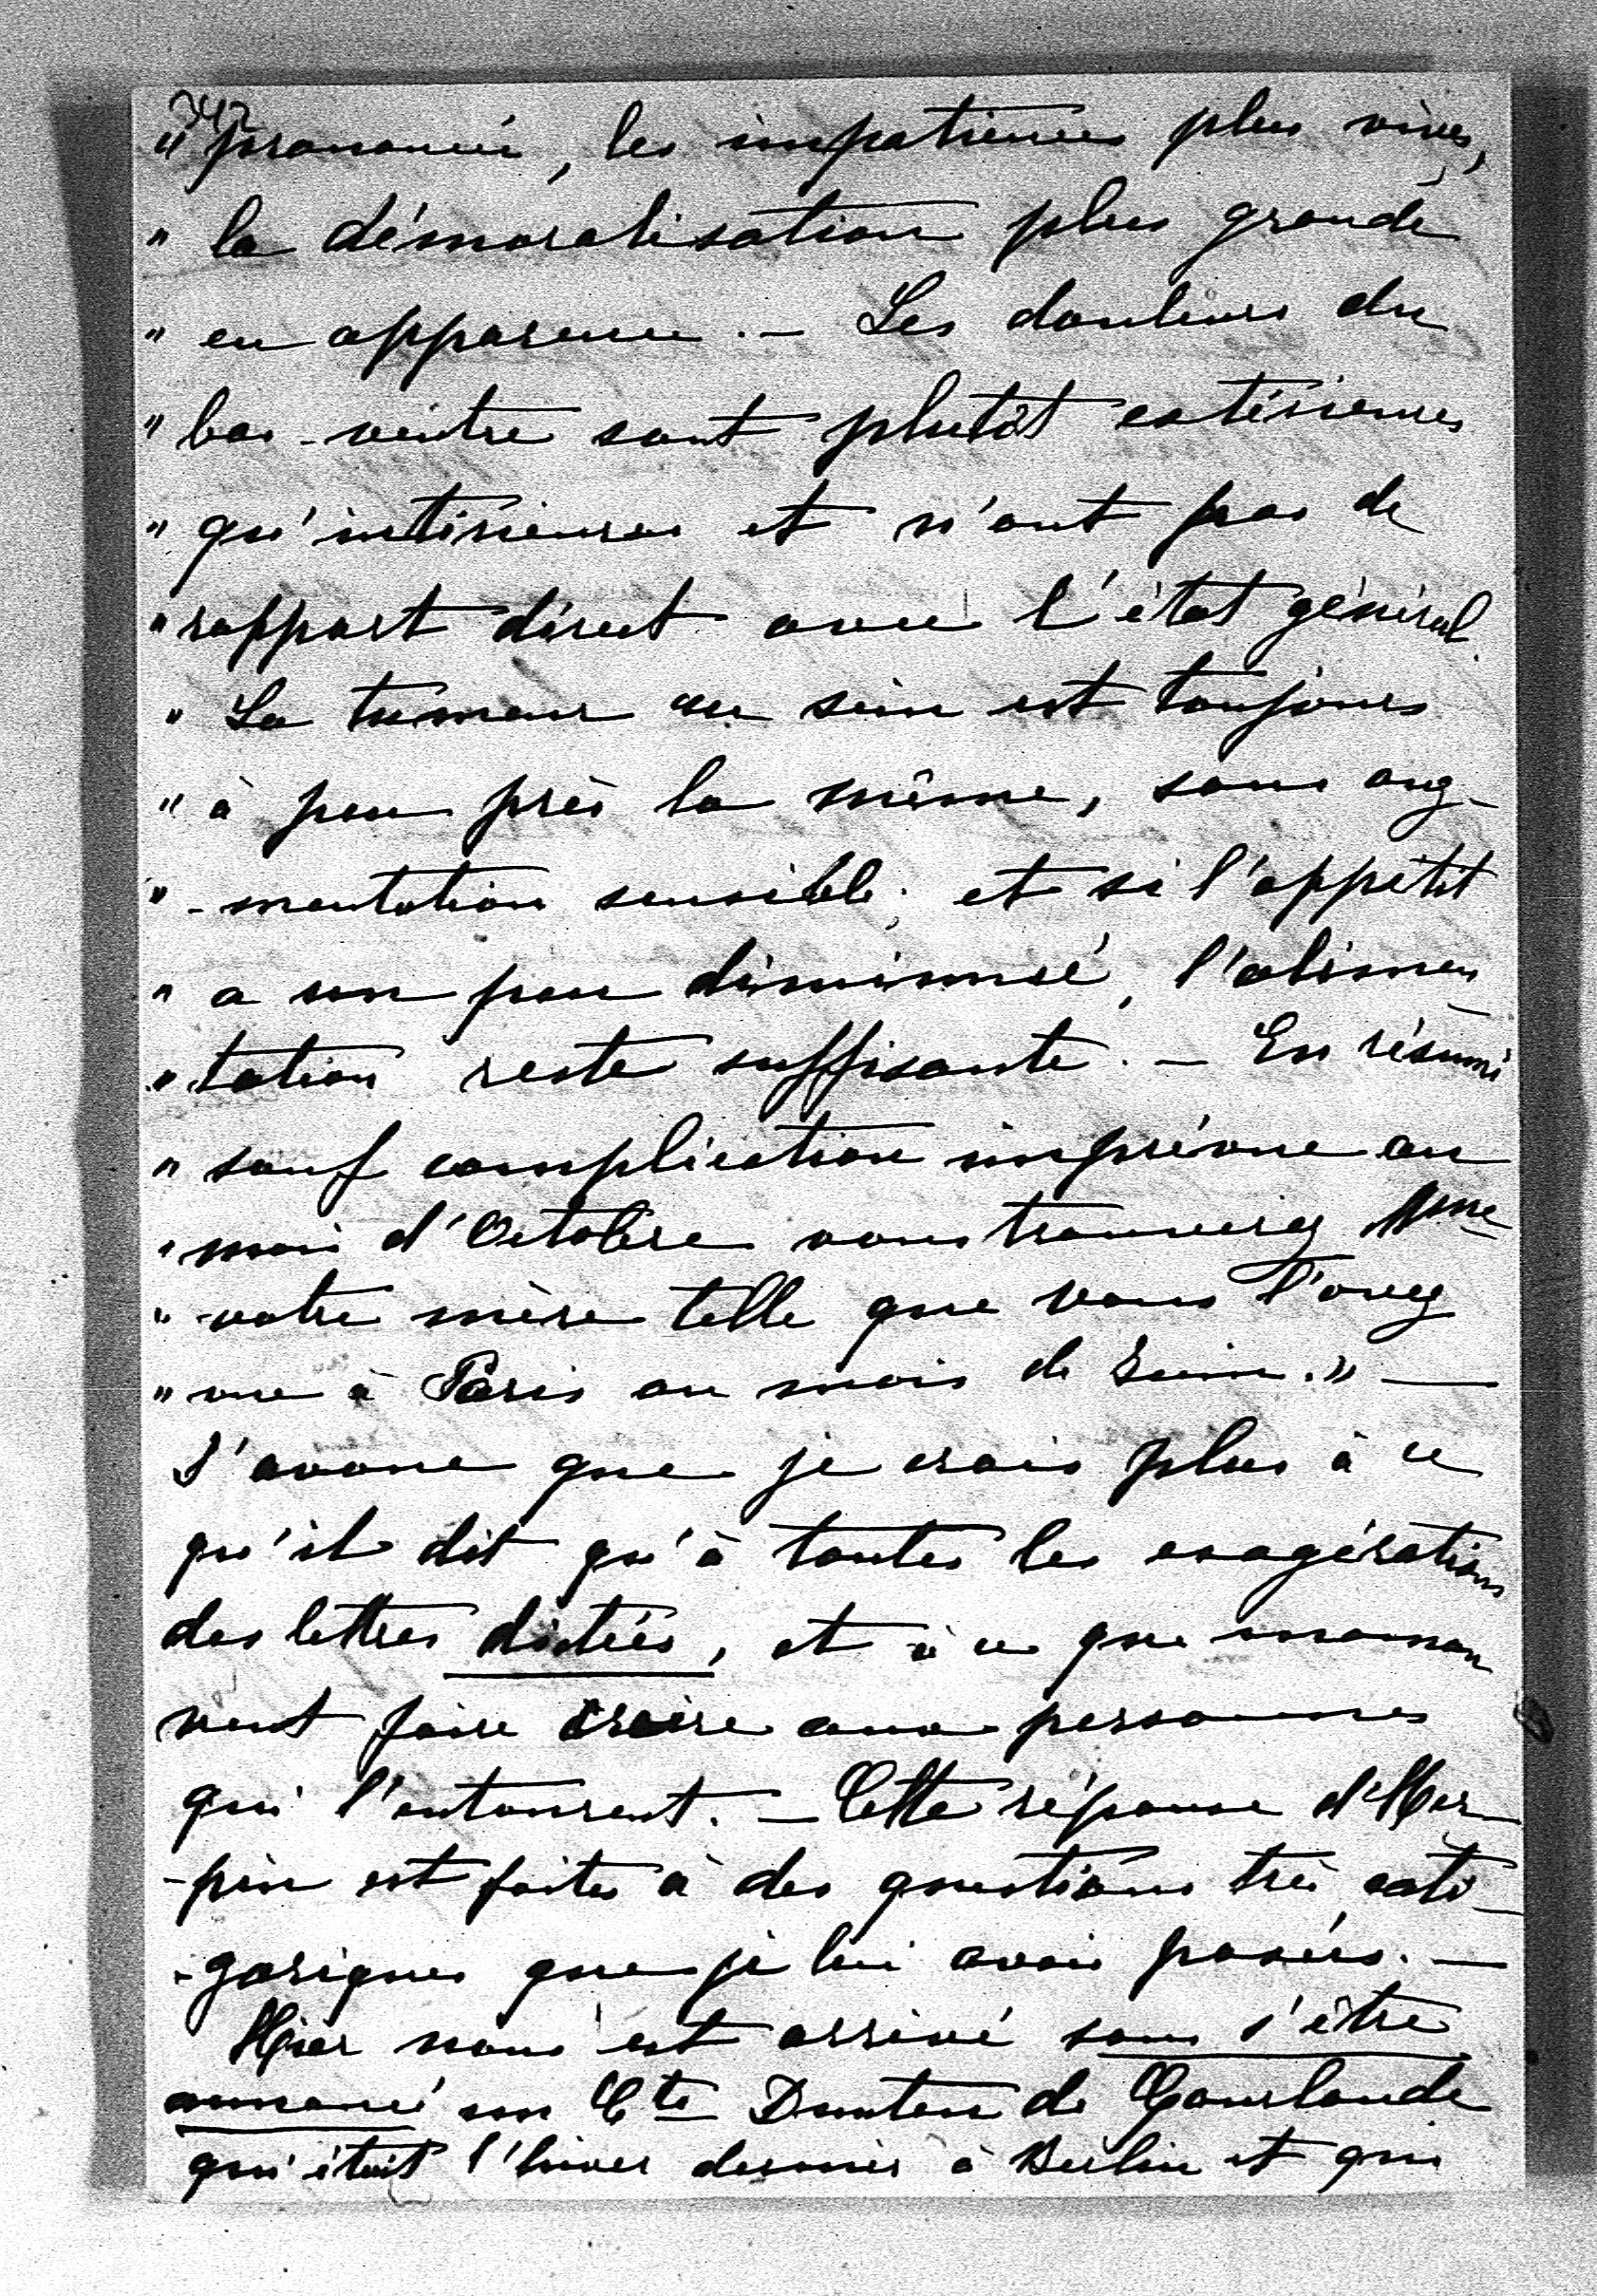 342
" prononcé, les impatiences plus vives,
" la démoralisation plus grande
" en apparence. — Les douleurs du
" bas-ventre sont plutôt extérieures
" qu'intérieures et n'ont pas de
" rapport direct avec l'état général.
" La tumeur au sein est toujours
" à peu près la même, sans aug-
" -mentation sensible; et si l'appétit
" a un peu diminué, l'alimen-
" tation reste suffisante. — En résumé
" sauf complication imprévue au
" mois d'Octobre vous trouverez Mme
" votre mère telle que vous l'avez
" vue à Paris au mois de Juin." —
J'avoue que je crois plus à ce
qu'il dit qu'à toutes les exagérations
des lettres dictées, et à ce que maman
veut faire croire aux personnes
qui l'entourent. — Cette réponse d'Her-
-pin est faites à des questions très caté-
-goriques que je lui avais posées. —
Hier nous est arrivé sans s'être
annoncé un Cte de Courlande
qui était l'hiver dernier à Berlin et qui